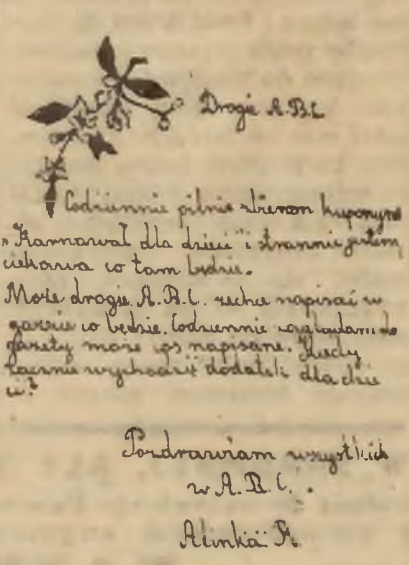 Drogie A.B.C.
Codziennie pilnie zbieram kupony na
„Karnawał dla dzieci" i strasznie jestem
ciekawa co tam będzie.
Może drogie A.B.C. zechce napisać w
gazecie co będzie. Codziennie zaglądam do
gazety może coś napisane. Kiedy
zacznie wychodzić dodatek dla dzie
ci?
Pozdrawiam wszystkich
w A.B.C.
Alinka F.